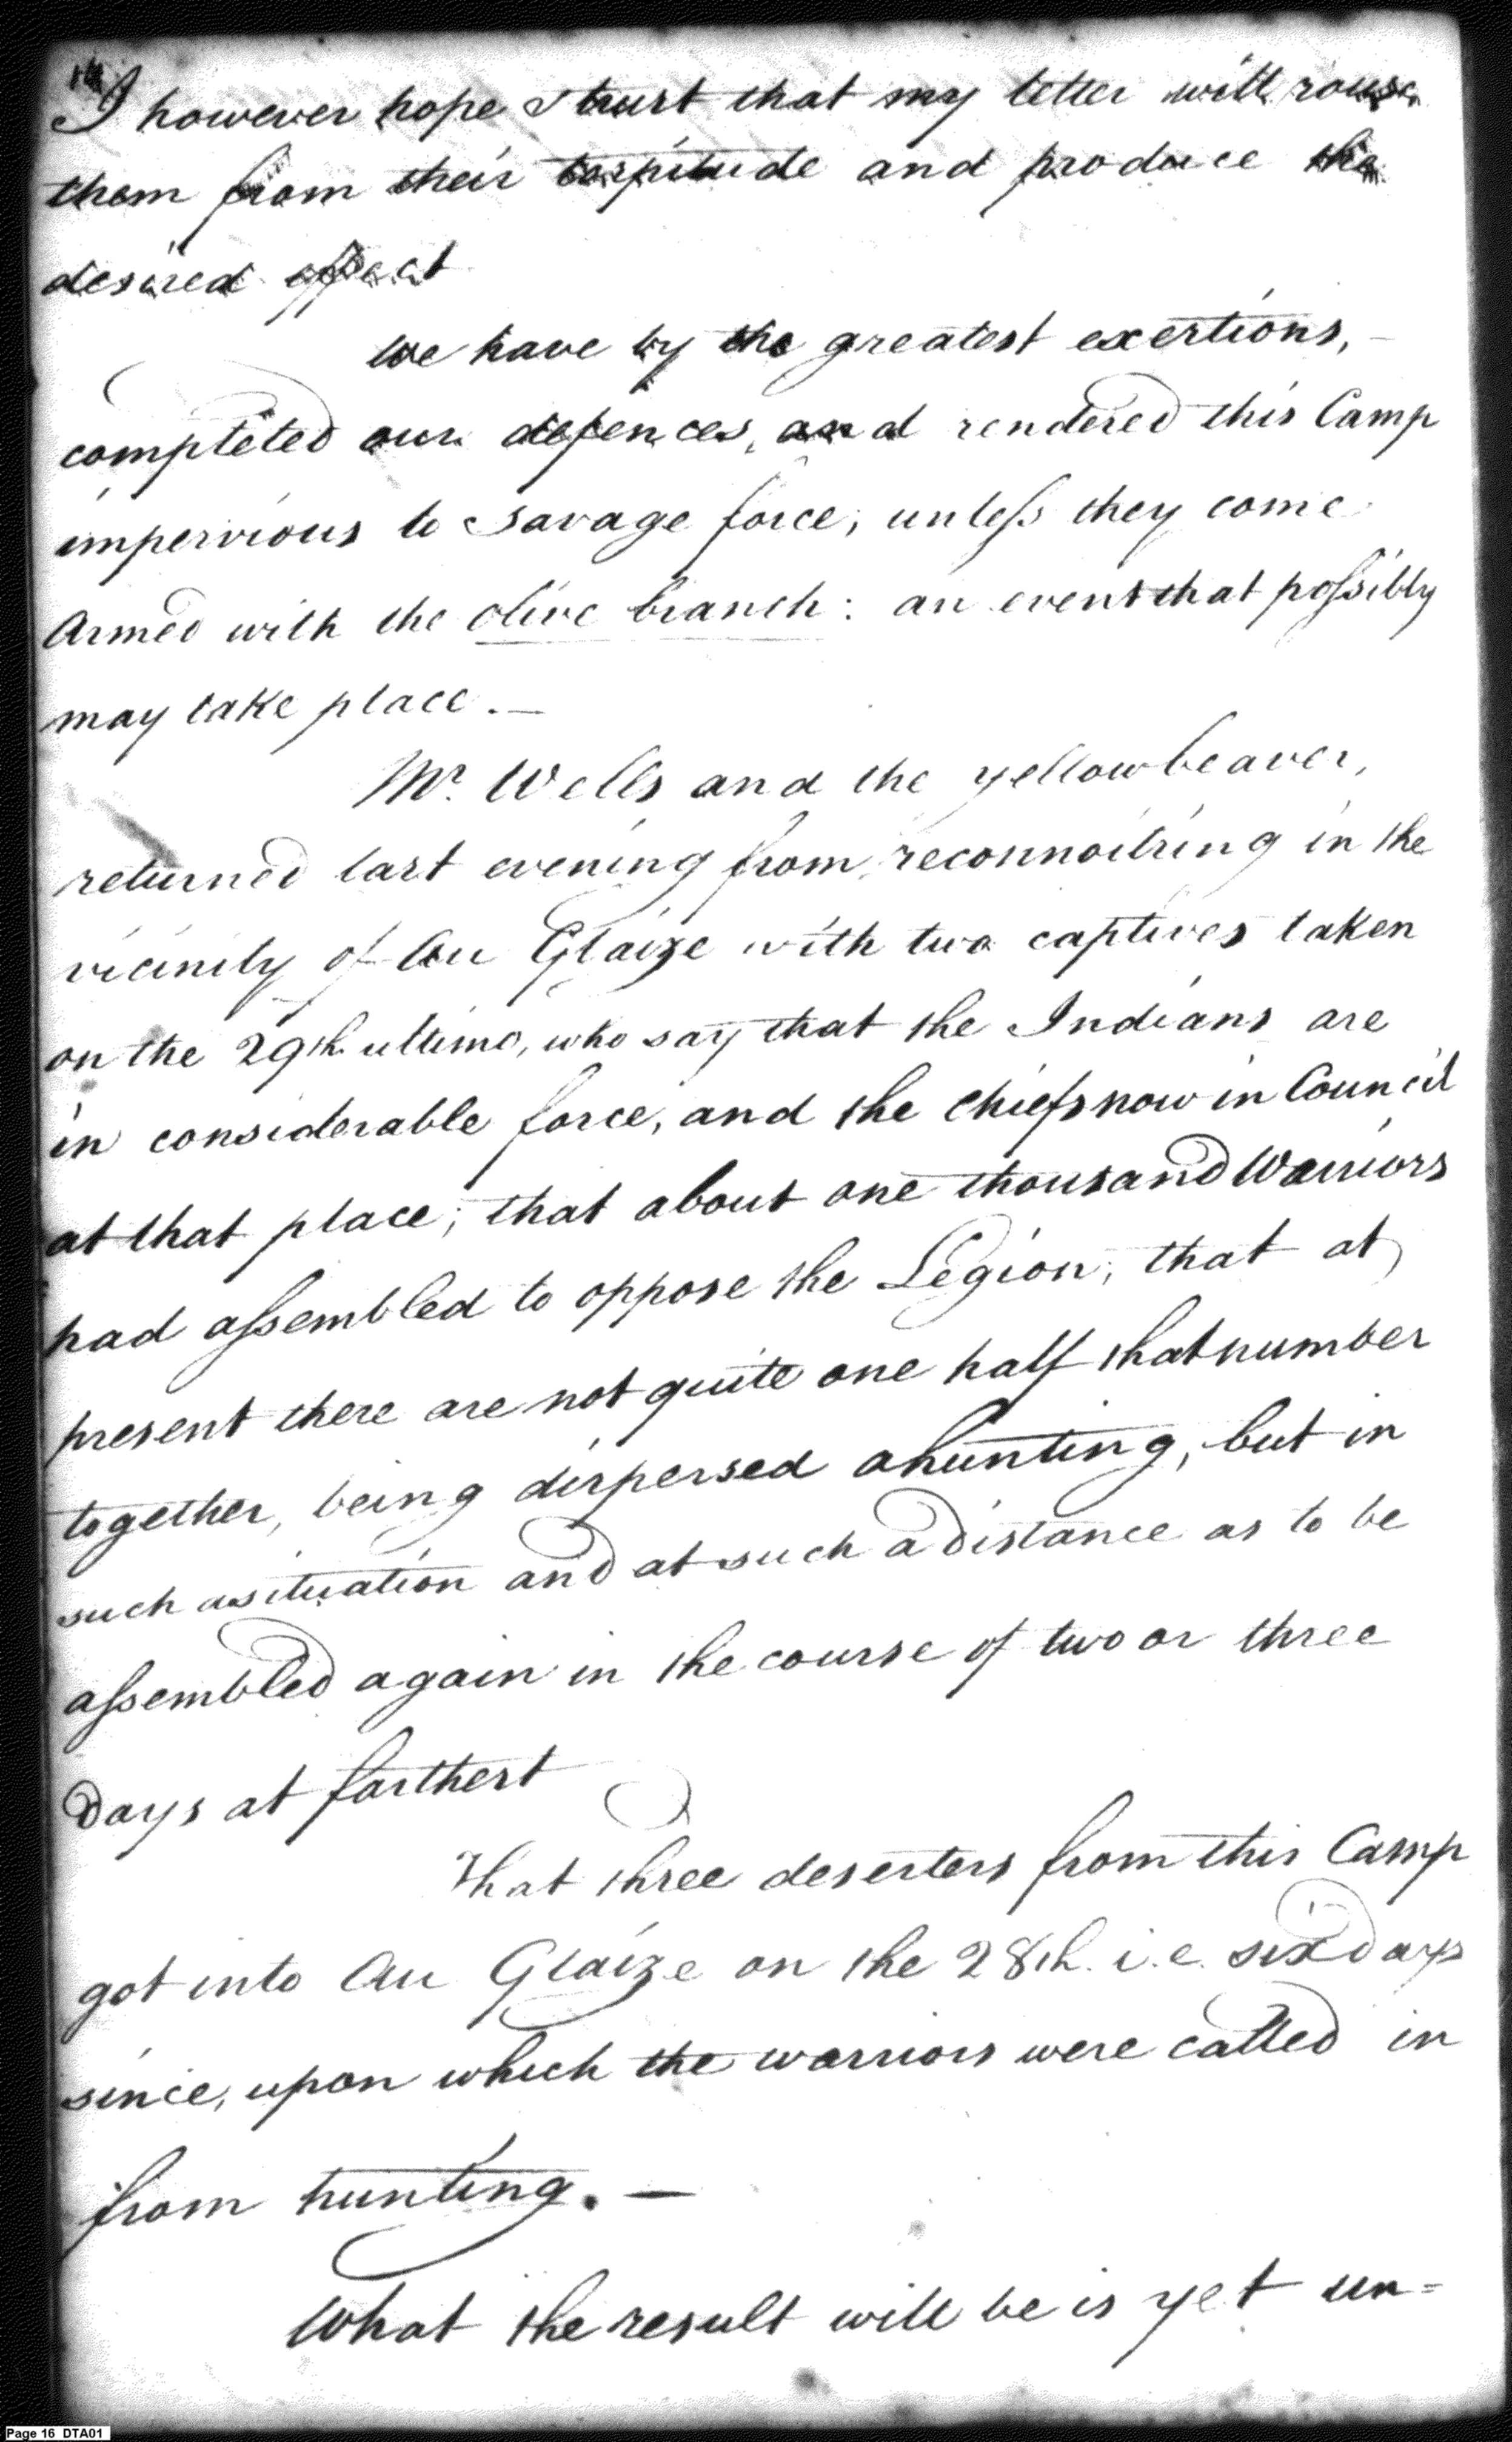 14
I however hope & trust that my letter will rouse
them from their torpitude and produce the
desired effect
We have by the greatest exertions,
completed our defences, and rendered this Camp
impervious to savage force, unless they come
Armed with the olive branch: an event that possibly
may take place. —
Mr. Wells and the yellow beaver,
returned last evening from reconnoitring in the
vicinity of Au Glaize with two captives taken
on the 29th. ultimo, who say that the Indians are
in considerable force, and the chiefs now in Council
at that place; that about one thousand Warriors
had assembled to oppose the Legion, that at
present there are not quite one half that number
together, being dispersed a hunting, but in
such a situation and at such a distance as to be
assembled again in the course of two or three
days at farthest
That three deserters from this Camp
got into Au Glaize on the 28th. i.e. six days
since, upon which the warriors were called in
from hunting. —
What the result will be is yet un=
Page 16 DTA01